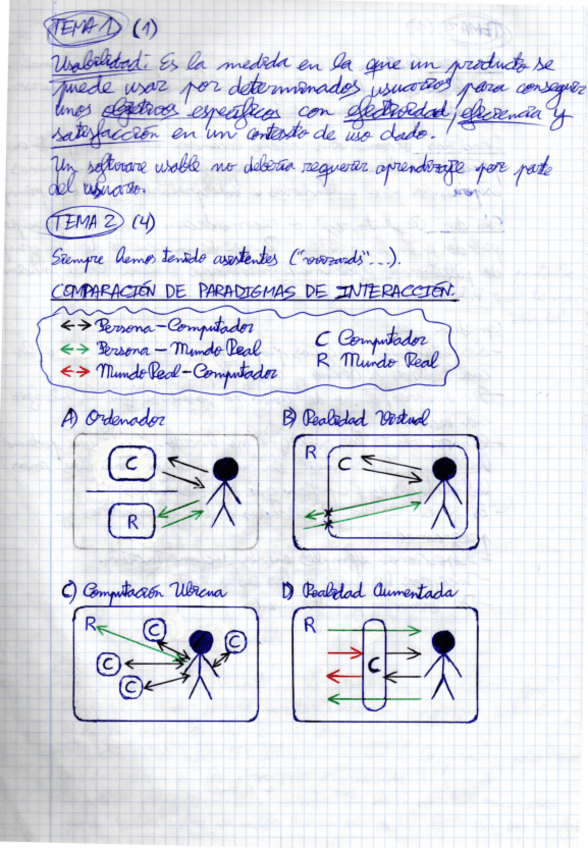 TEMA 1 (1)
Usabilidad: Es la medida en la que un producto se
puede usar por determinados usuarios para conseguir
unos objetivos específicos con efectividad, eficiencia y
satisfacción en un contexto de uso dado.
Un software usable no debería requerir aprendizaje por parte
del usuario.
TEMA 2 (4)
Siempre hemos tenido asistentes ("wizards"...).
COMPARACIÓN DE PARADIGMAS DE INTERACCIÓN.
Persona-Computador
Persona-Mundo Real
Mundo Real-Computador
C Computador
R Mundo Real
A) Ordenador
B) Realidad Virtual
C
R
R
C
C) Computación Ubicua
D) Realidad Aumentada
R
C
C
C
C
R
C